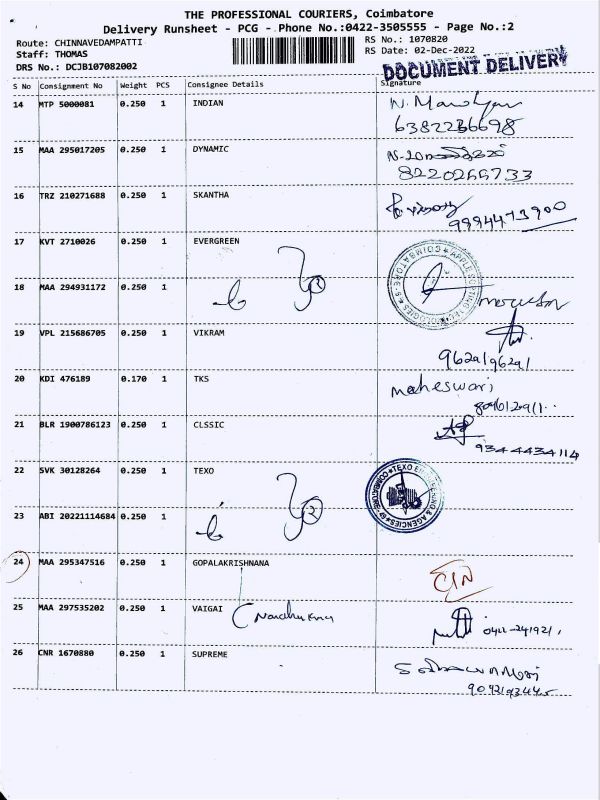 THE PROFESSIONAL COURIERS, Coimbatore
Delivery Runsheet - PCG - Phone No.:0422-3505555 - Page No.:2
Route: CHINNAVEDAMPATTI
Staff: THOMAS
DRS No.: DCJB107082002
RS No.: 1070820
RS Date: 02-Dec-2022
DOCUMENT DELIVERY
S No Consignment No Weight PCS Consignee Details Signature
14 MTP 5000081 0.250 1 INDIAN
6382236698
15 MAA 295017205 0.250 1 DYNAMIC
8220266733
16 TRZ 210271688 0.250 1 SKANTHA
9994473900
17 KVT 2710026 0.250 1 EVERGREEN
18 MAA 294931172 0.250 1
19 VPL 215686705 0.250 1 VIKRAM
20 KDI 476189 0.170 1 TKS
maheswari
21 BLR 1900786123 0.250 1 CLSSIC
9344434114
22 SVK 30128264 0.250 1 TEXO
23 ABI 20221114684 0.250 1
24 MAA 295347516 1 0.250 GOPALAKRISHNANA
25 MAA 297535202 0.250 1 VAIGAI
26 CNR 1670880 0.250 1 SUPREME